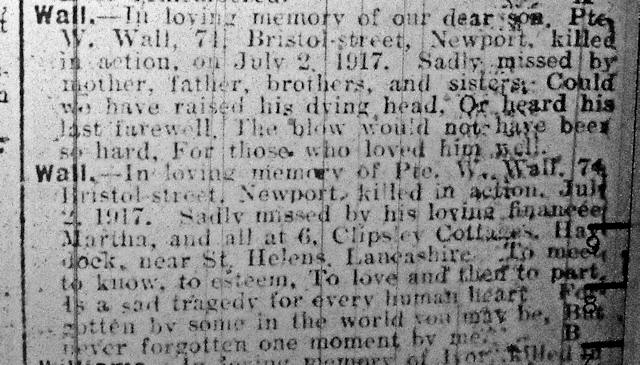 Wall.—In loving memory of our dear son, Pte.
W. Wall, 71, Bristol-street, Newport, killed
in action, on July 2, 1917. Sadly missed by
mother, father, brothers, and sisters. Could
we have raised his dying head, Or heard his
last farewell, The blow would not have been
so hard, For those who loved him well.
Wall.—In loving memory of Pte. W. Wall, 74,
Bristol-street, Newport, killed in action, July
2, 1917. Sadly missed by his loving financee,
Martha, and all at 6, Clipsley Cottages, Hay
dock, near St. Helens, Lancashire. To meet,
to know, to esteem, To love and then to part,
Is a sad tragedy for every human heart. For
gotten by some in the world you may be, But
never forgotten one moment by me. B.
In loving memory of killed in